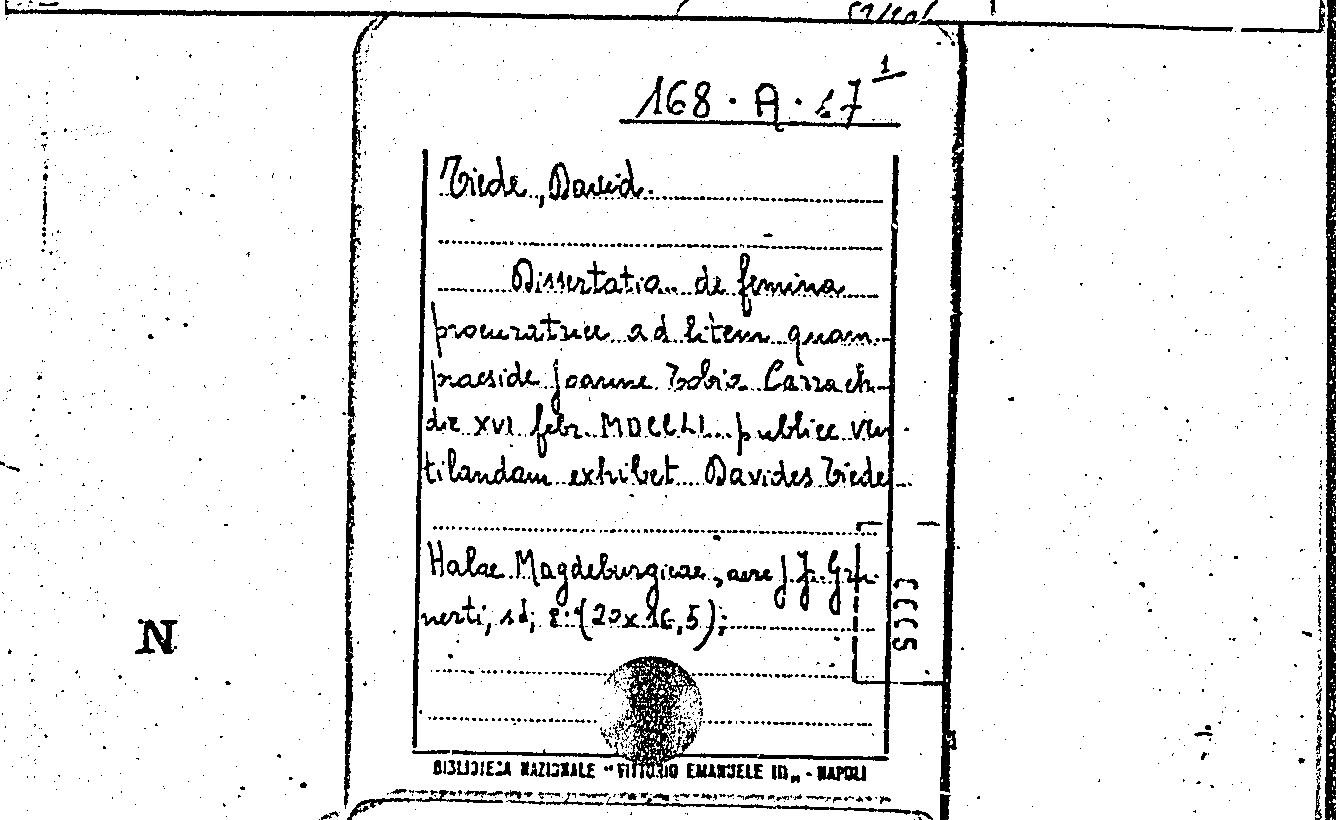 168 · A · 27 1
Tiede, David.
Dissertatio de femina
procuratrice ad litem quam
praeside Joanne Tobia Carrach
die XVI febr. MDCCLI publice ven
tilandam exhibet Davides Tiede
Halae Magdeburgicae, aere J. J. Gru-
nerti, sd; 8° (20x16,5);
BIBLIOTECA NAZIONALE "VITTORIO EMANUELE III" - NAPOLI
N